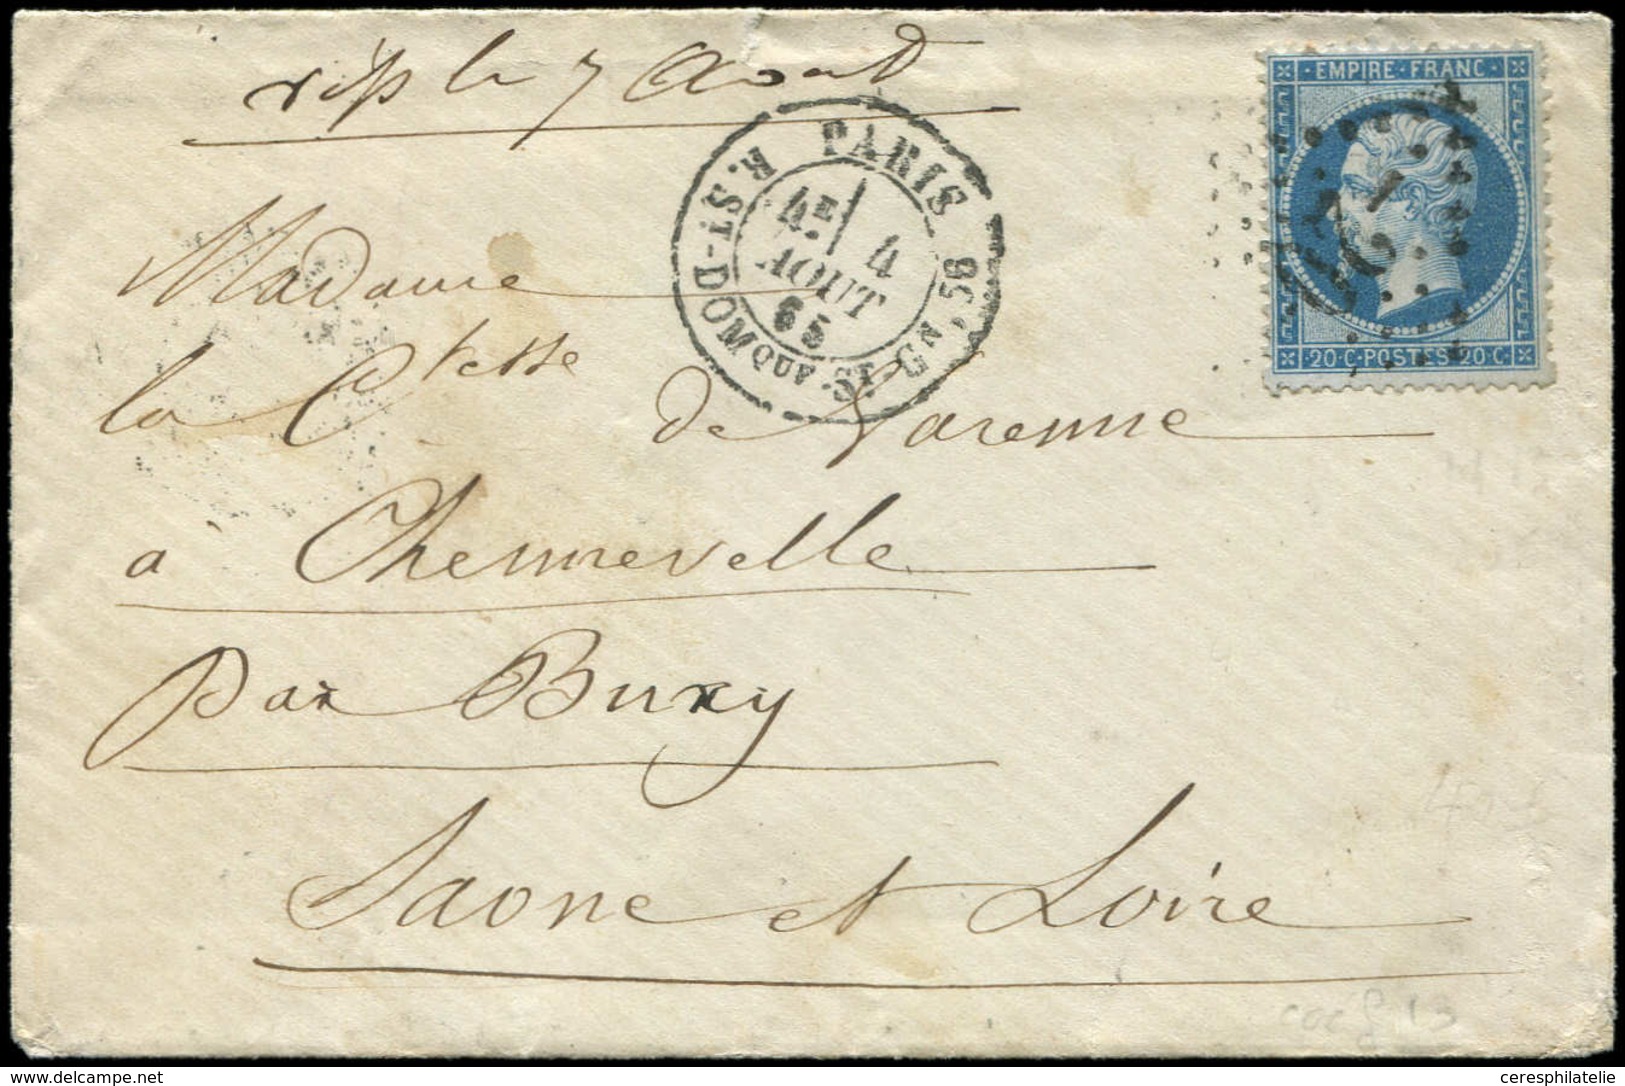 rép le 7 Aout
EMPIRE FRANC
20 C POSTES 20 C
PARIS
R. ST-DOMQUE ST GN, 58
4E 4
AOUT
65
Madame
la Ctesse de Varenne
a Chennevelle
par Buxy
Saone et Loire
www.delcampe.net
ceresphilatelie